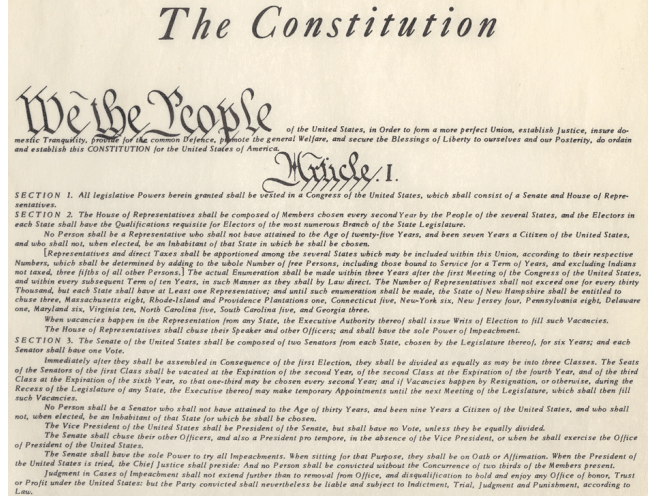 The Constitution
We the People
of the United States, in Order to form a more perfect Union, establish Justice, insure do-
mestic Tranquility, provide for the common Defence, promote the general Welfare, and secure the Blessings of Liberty to ourselves and our Posterity, do ordain
and establish this CONSTITUTION for the United States of America.
Article I.
SECTION 1. All legislative Powers herein granted shall be vested in a Congress of the United States, which shall consist of a Senate and House of Repre-
sentatives.
SECTION 2. The House of Representatives shall be composed of Members chosen every second Year by the People of the several States, and the Electors in
each State shall have the Qualifications requisite for Electors of the most numerous Branch of the State Legislature.
No Person shall be a Representative who shall not have attained to the Age of twenty-five Years, and been seven Years a Citizen of the United States,
and who shall not, when elected, be an Inhabitant of that State in which he shall be chosen.
[Representatives and direct Taxes shall be apportioned among the several States which may be included within this Union, according to their respective
Numbers, which shall be determined by adding to the whole Number of free Persons, including those bound to Service for a Term of Years, and excluding Indians
not taxed, three fifths of all other Persons.] The actual Enumeration shall be made within three Years after the first Meeting of the Congress of the United States,
and within every subsequent Term of ten Years, in such Manner as they shall by Law direct. The Number of Representatives shall not exceed one for every thirty
Thousand, but each State shall have at Least one Representative; and until such enumeration shall be made, the State of New Hampshire shall be entitled to
chuse three, Massachusetts eight, Rhode-Island and Providence Plantations one, Connecticut five, New-York six, New Jersey four, Pennsylvania eight, Delaware
one, Maryland six, Virginia ten, North Carolina five, South Carolina five, and Georgia three.
When vacancies happen in the Representation from any State, the Executive Authority thereof shall issue Writs of Election to fill such Vacancies.
The House of Representatives shall chuse their Speaker and other Officers; and shall have the sole Power of Impeachment.
SECTION 3. The Senate of the United States shall be composed of two Senators from each State, chosen by the Legislature thereof, for six Years; and each
Senator shall have one Vote.
Immediately after they shall be assembled in Consequence of the first Election, they shall be divided as equally as may be into three Classes. The Seats
of the Senators of the first Class shall be vacated at the Expiration of the second Year, of the second Class at the Expiration of the fourth Year, and of the third
Class at the Expiration of the sixth Year, so that one-third may be chosen every second Year; and if Vacancies happen by Resignation, or otherwise, during the
Recess of the Legislature of any State, the Executive thereof may make temporary Appointments until the next Meeting of the Legislature, which shall then fill
such Vacancies.
No Person shall be a Senator who shall not have attained to the Age of thirty Years, and been nine Years a Citizen of the United States, and who shall
not, when elected, be an Inhabitant of that State for which he shall be chosen.
The Vice President of the United States shall be President of the Senate, but shall have no Vote, unless they be equally divided.
The Senate shall chuse their other Officers, and also a President pro tempore, in the absence of the Vice President, or when he shall exercise the Office
of President of the United States.
The Senate shall have the sole Power to try all Impeachments. When sitting for that Purpose, they shall be on Oath or Affirmation. When the President of
the United States is tried, the Chief Justice shall preside: And no Person shall be convicted without the Concurrence of two thirds of the Members present.
Judgment in Cases of Impeachment shall not extend further than to removal from Office, and disqualification to hold and enjoy any Office of honor, Trust
or Profit under the United States: but the Party convicted shall nevertheless be liable and subject to Indictment, Trial, Judgment and Punishment, according to
Law.